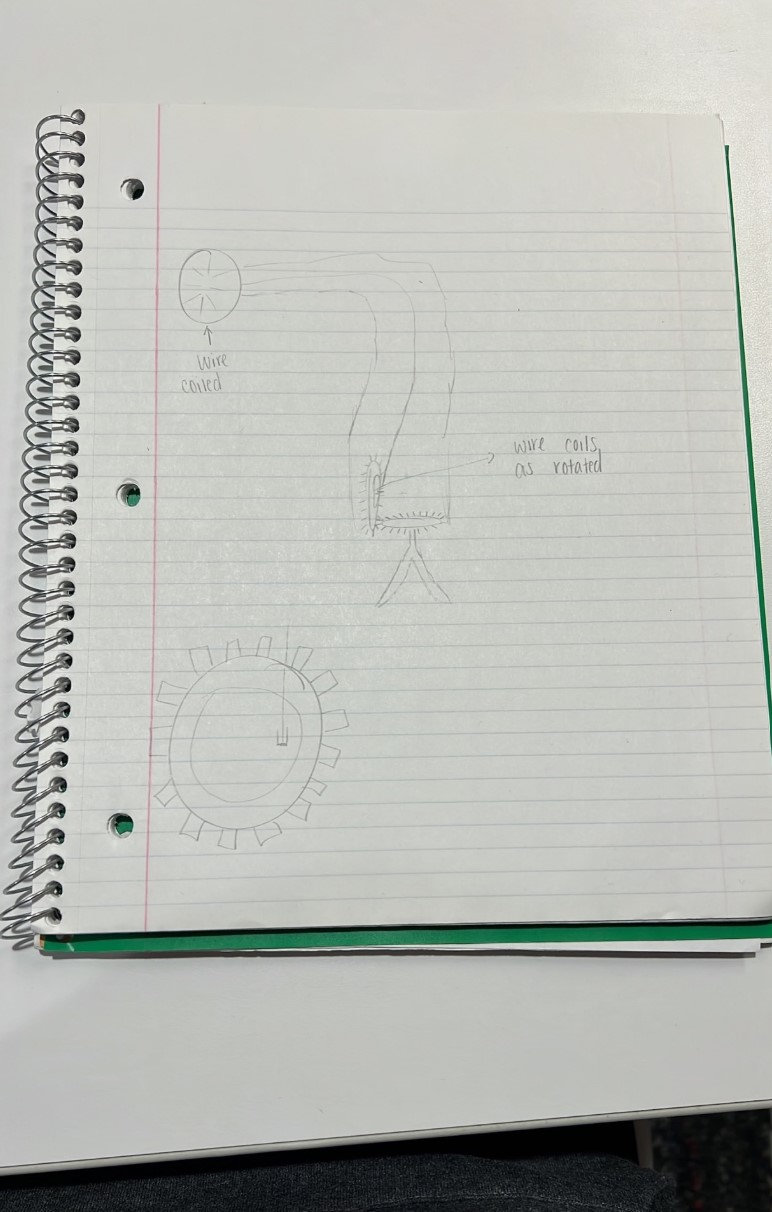 wire
coiled
wire coils
as rotated